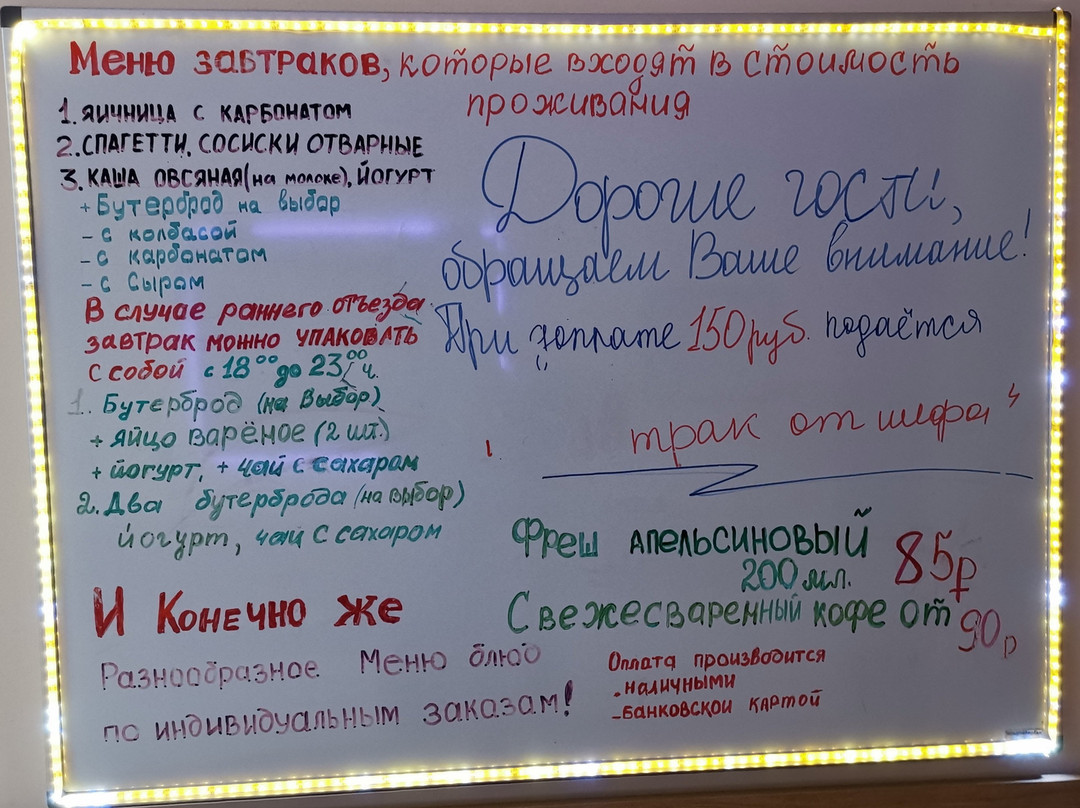 Меню завтраков, которые входят в стоимость
проживания
1. ЯИЧНИЦА С КАРБОНАТОМ
2. СПАГЕТТИ, СОСИСКИ ОТВАРНЫЕ
3. КАША ОВСЯНАЯ (на молоке), ЙОГУРТ
+ Бутерброд на выбор
- с колбасой
- с карбонатом
- с Сыром
В случае раннего отъезда
завтрак можно УПАКОВАТЬ
с собой с 18⁰⁰ до 23⁰⁰ ч.
1. Бутерброд (на Выбор)
+ ЯЙЦО ВАРЁНОЕ (2 шт.)
+ йогурт, + чай с сахаром
2. Два бутерброда (на выбор)
йогурт, чай с сахаром
И Конечно же
Разнообразное Меню блюд
по индивидуальным заказам!
Дорогие гости,
обращаем Ваше внимание!
При доплате 150 руб. подаётся
трак от шефа"
Фреш апельсиновый 85р
200 мл.
Свежесваренный кофе от 90р
Оплата производится
- наличными
- банковской картой